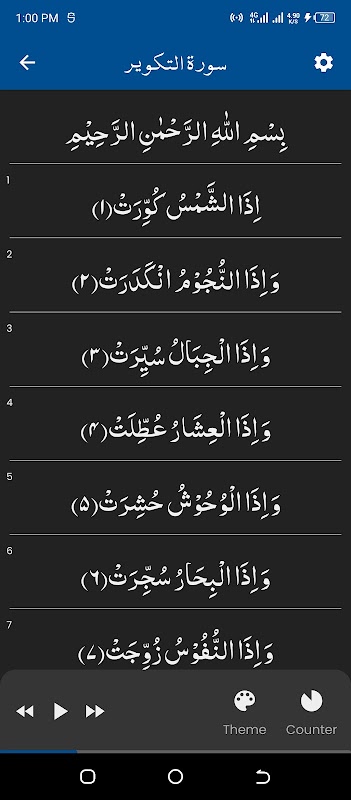 1:00 PM
4G 4.90 K/S 72
سورة التكوير
بِسْمِ اللهِ الرَّحْمٰنِ الرَّحِيْمِ
1
اِذَا الشَّمْسُ كُوِّرَتْ(۱)
2
وَاِذَا النُّجُوْمُ انْكَدَرَتْ(۲)
3
وَاِذَا الْجِبَالُ سُيِّرَتْ(۳)
4
وَاِذَا الْعِشَارُ عُطِّلَتْ(۴)
5
وَاِذَا الْوُحُوْشُ حُشِرَتْ(۵)
6
وَاِذَا الْبِحَارُ سُجِّرَتْ(۶)
7
وَاِذَا النُّفُوْسُ زُوِّجَتْ(۷)
Theme Counter